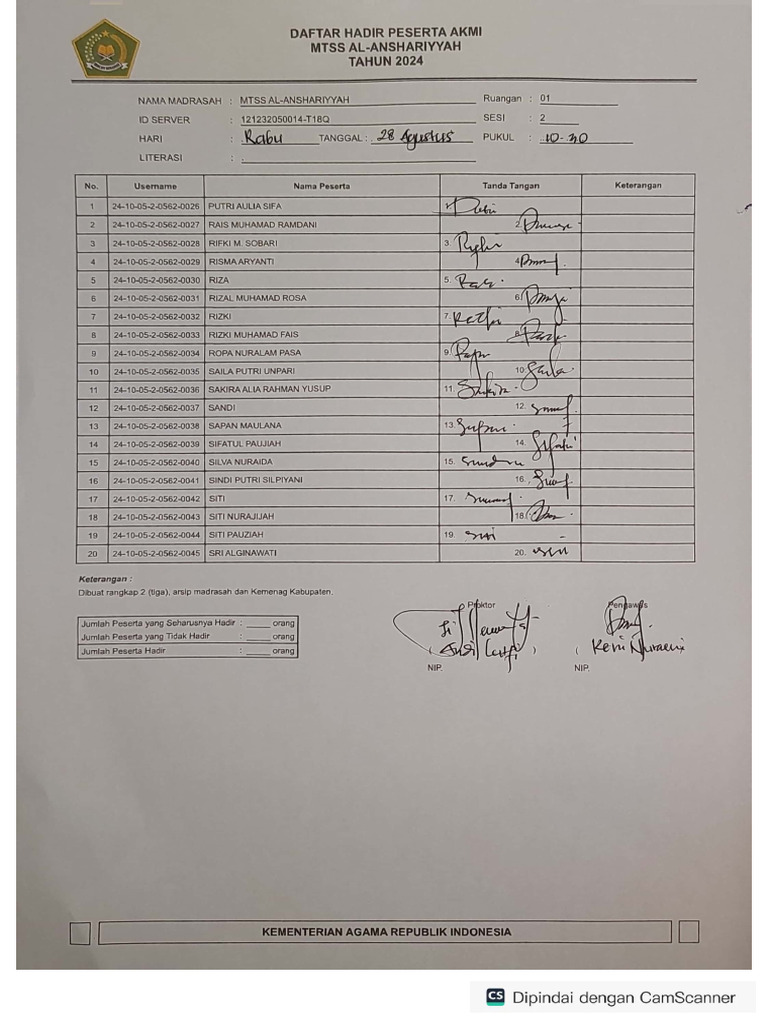 DAFTAR HADIR PESERTA AKMI
MTSS AL-ANSHARIYYAH
TAHUN 2024
NAMA MADRASAH : MTSS AL-ANSHARIYYAH Ruangan : 01
ID SERVER : 121232050014-T18Q SESI : 2
HARI : Rabu TANGGAL : 28 Agustus PUKUL : 10-30
LITERASI :
No. Username Nama Peserta Tanda Tangan Keterangan
1 24-10-05-2-0562-0026 PUTRI AULIA SIFA 1.
2 24-10-05-2-0562-0027 RAIS MUHAMAD RAMDANI 2.
3 24-10-05-2-0562-0028 RIFKI M. SOBARI 3.
4 24-10-05-2-0562-0029 RISMA ARYANTI 4.
5 24-10-05-2-0562-0030 RIZA 5.
6 24-10-05-2-0562-0031 RIZAL MUHAMAD ROSA 6.
7 24-10-05-2-0562-0032 RIZKI 7.
8 24-10-05-2-0562-0033 RIZKI MUHAMAD FAIS 8.
9 24-10-05-2-0562-0034 ROPA NURALAM PASA 9.
10 24-10-05-2-0562-0035 SAILA PUTRI UNPARI 10.
11 24-10-05-2-0562-0036 SAKIRA ALIA RAHMAN YUSUP 11.
12 24-10-05-2-0562-0037 SANDI 12.
13 24-10-05-2-0562-0038 SAPAN MAULANA 13.
14 24-10-05-2-0562-0039 SIFATUL PAUJIAH 14.
15 24-10-05-2-0562-0040 SILVA NURAIDA 15.
16 24-10-05-2-0562-0041 SINDI PUTRI SILPIYANI 16.
17 24-10-05-2-0562-0042 SITI 17.
18 24-10-05-2-0562-0043 SITI NURAJIJAH 18.
19 24-10-05-2-0562-0044 SITI PAUZIAH 19.
20 24-10-05-2-0562-0045 SRI ALGINAWATI 20.
Keterangan :
Dibuat rangkap 2 (tiga), arsip madrasah dan Kemenag Kabupaten.
Proktor Pengawas
Jumlah Peserta yang Seharusnya Hadir : _____ orang
Jumlah Peserta yang Tidak Hadir : _____ orang
Jumlah Peserta Hadir : _____ orang
( ) ( Reni Nuraeni )
NIP. NIP.
KEMENTERIAN AGAMA REPUBLIK INDONESIA
CS Dipindai dengan CamScanner